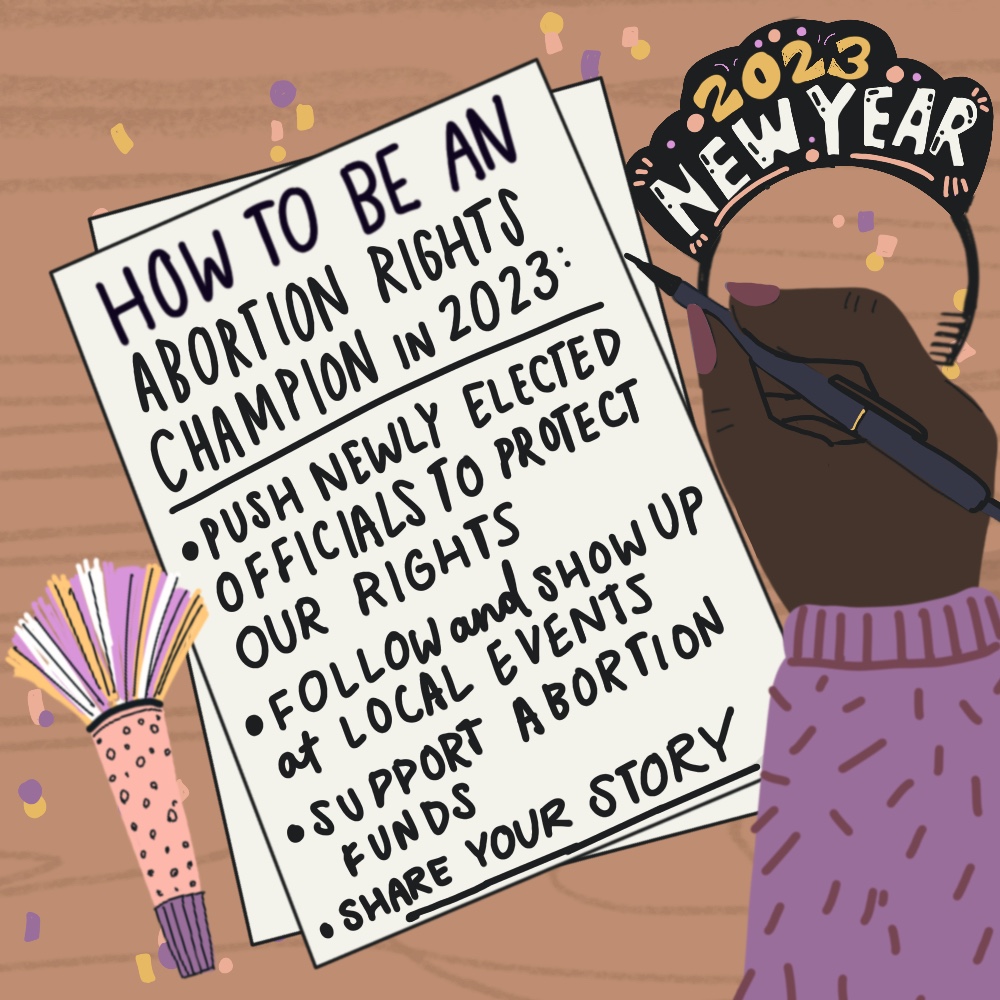 2023
NEW YEAR
HOW TO BE AN
ABORTION RIGHTS
CHAMPION IN 2023:
• PUSH NEWLY ELECTED
OFFICIALS TO PROTECT
OUR RIGHTS
• FOLLOW and SHOW UP
at LOCAL EVENTS
• SUPPORT ABORTION
FUNDS
• SHARE YOUR STORY